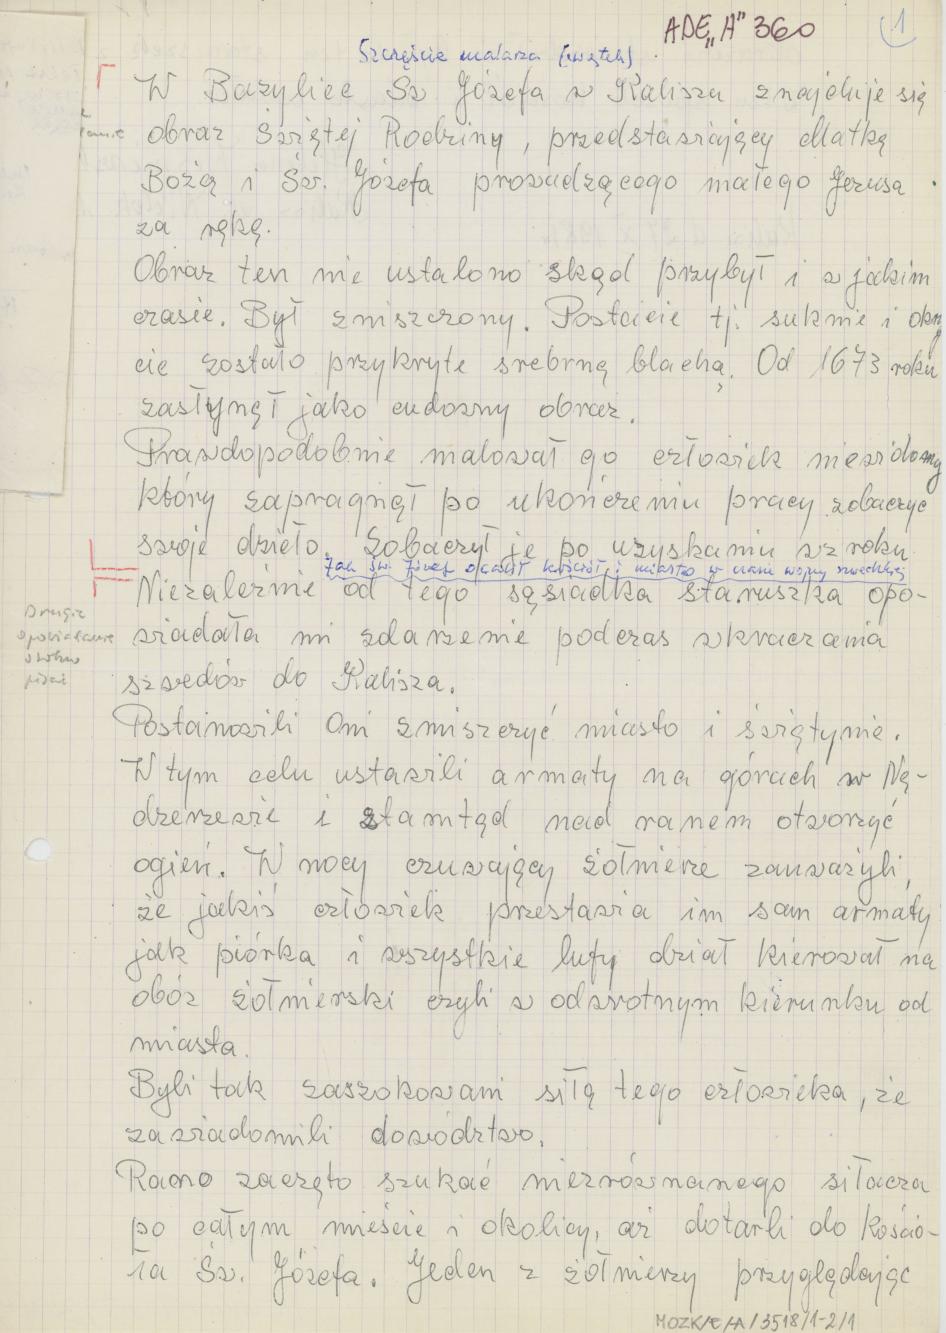 ADE„A" 360
1
Szczęście malarza [wątek]
W Bazylice Św Józefa w Kalisza znajduje się
obraz Świętej Rodziny, przedstawiający Matkę
Bożą i Św. Józefa prowadzącego małego Jezusa
za rękę.
Obraz ten nie ustalono skąd przybył i w jakim
czasie. Był zniszczony. Postacie tj. suknie i okry
cie zostało przykryte srebrną blachą. Od 1673 roku
zasłynął jako cudowny obraz.
Prawdopodobnie malował go człowiek niewidomy
który zapragnął po ukończeniu pracy zobaczyć
swoje dzieło. Zobaczył je po uzyskaniu wzroku.
Jak św. Józef ocalił kościół i miasto w czasie wojny szwedzkiej
Niezależnie od tego sąsiadka staruszka opo-
wiadała mi zdarzenie podczas wkraczania
szwedów do Kalisza.
Drugie
opowiadanie
osobno
pisać
Postanowili Oni zniszczyć miasto i świątynie.
W tym celu ustawili armaty na górach w Nę-
dzerzewie i stamtąd nad ranem otworzyć
ogień. W nocy czuwający żołnierze zauważyli,
że jakiś człowiek przestawia im sam armaty
jak piórka i wszystkie lufy dział kierował na
obóz żołnierski czyli w odwrotnym kierunku od
miasta.
Byli tak zaszokowani siłą tego człowieka, że
zawiadomili dowództwo.
Rano zaczęto szukać niezrównanego siłacza
po całym mieście i okolicy, aż dotarli do Kościo-
ła Św. Józefa. Jeden z żołnierzy przyglądając
MOZK/E/A/3518/1-2/1